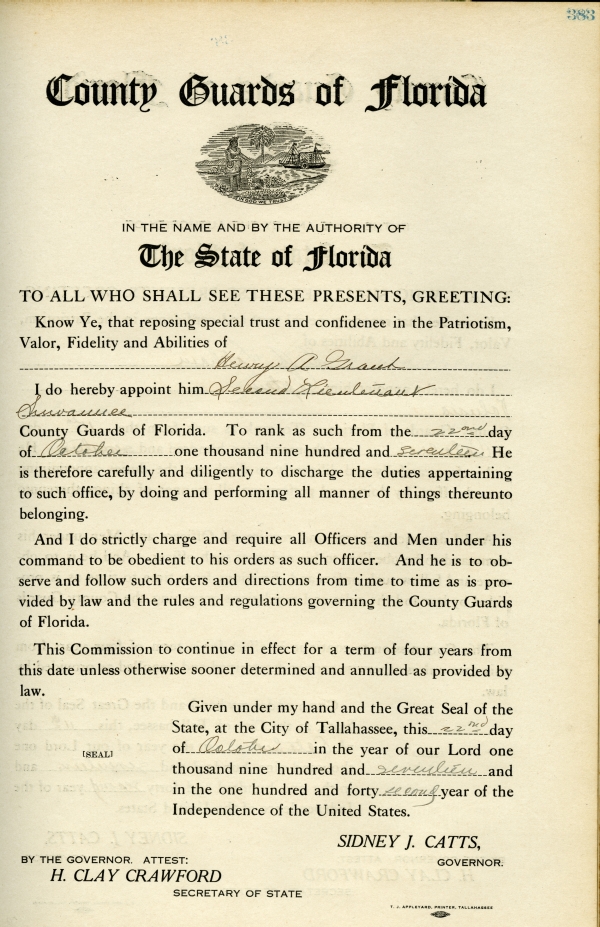 383
County Guards of Florida
IN GOD WE TRUST
IN THE NAME AND BY THE AUTHORITY OF
The State of Florida
TO ALL WHO SHALL SEE THESE PRESENTS, GREETING:
Know Ye, that reposing special trust and confidence in the Patriotism,
Valor, Fidelity and Abilities of
Henry A Grant
I do hereby appoint him Second Lieutenant
Suwannee
County Guards of Florida. To rank as such from the 22nd day
of October one thousand nine hundred and seventeen He
is therefore carefully and diligently to discharge the duties appertaining
to such office, by doing and performing all manner of things thereunto
belonging.
And I do strictly charge and require all Officers and Men under his
command to be obedient to his orders as such officer. And he is to ob-
serve and follow such orders and directions from time to time as is pro-
vided by law and the rules and regulations governing the County Guards
of Florida.
This Commission to continue in effect for a term of four years from
this date unless otherwise sooner determined and annulled as provided by
law.
Given under my hand and the Great Seal of the
State, at the City of Tallahassee, this 22nd day
[SEAL] of October in the year of our Lord one
thousand nine hundred and seventeen and
in the one hundred and forty second year of the
Independence of the United States.
SIDNEY J. CATTS,
GOVERNOR.
BY THE GOVERNOR. ATTEST:
H. CLAY CRAWFORD
SECRETARY OF STATE
T. J. APPLEYARD, PRINTER, TALLAHASSEE